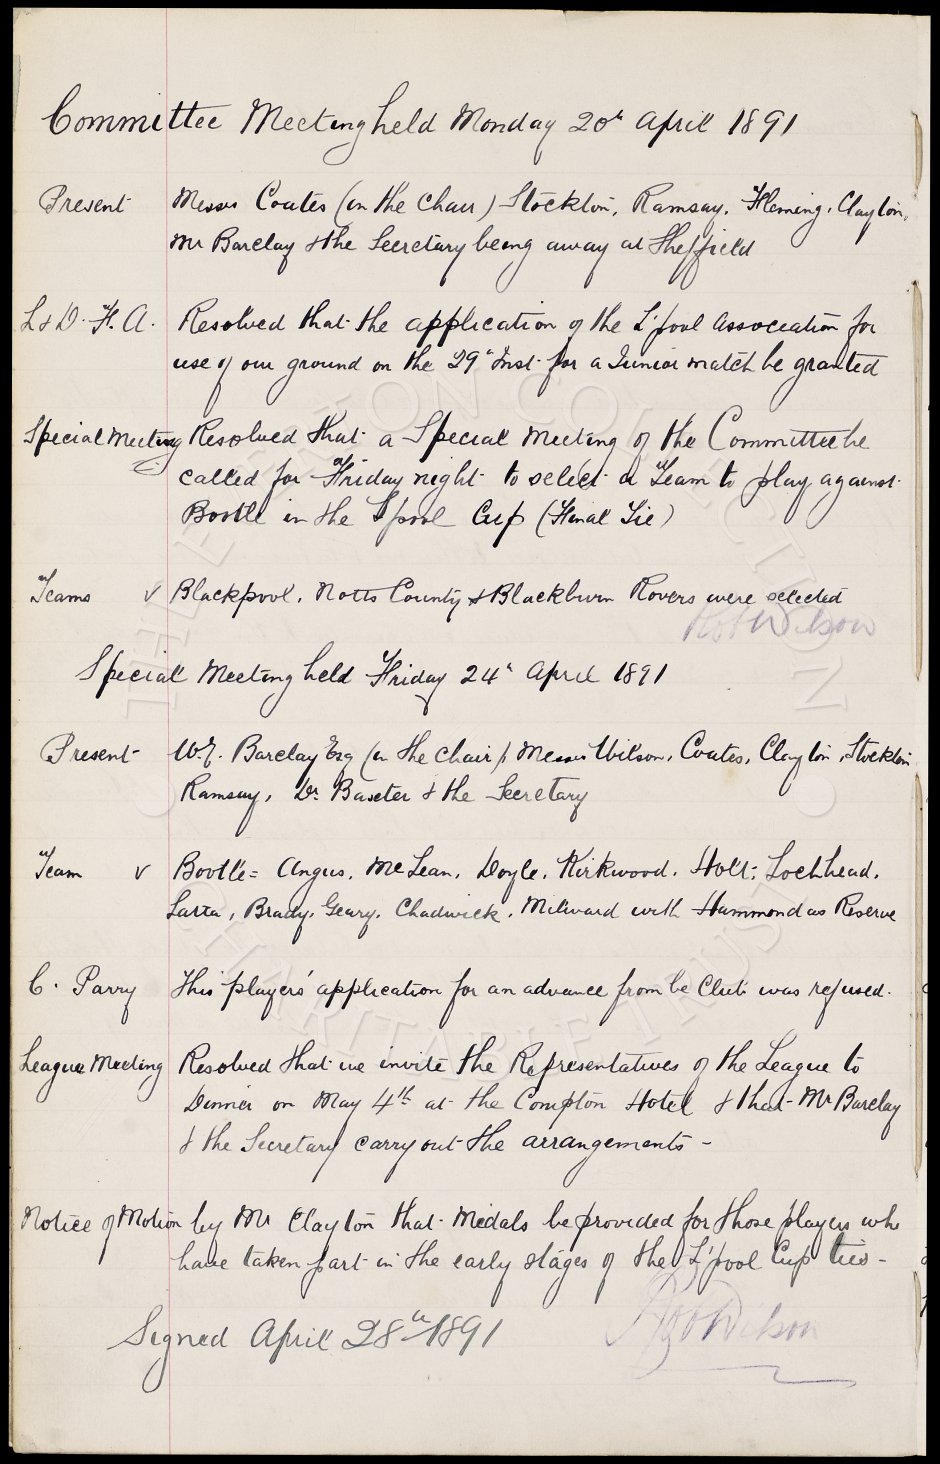 Committee Meeting held Monday 20th April 1891
Present Messrs Coates (in the Chair) Stockton, Ramsay, Fleming, Clayton,
Mr Barclay & the Secretary being away at Sheffield
L & D. F. A. Resolved that the application of the L'pool Association for
use of our ground on the 29th Inst for a Junior match be granted
Special Meeting Resolved that a Special Meeting of the Committee be
called for Friday night to select a Team to play against
Bootle in the L'pool Cup (Final Tie)
Teams v Blackpool, Notts County & Blackburn Rovers were selected
Robt Wilson
Special Meeting held Friday 24th April 1891
Present W.E. Barclay Esq (in the Chair), Messrs Wilson, Coates, Clayton, Stockton
Ramsay, Dr. Baxter & the Secretary
Team v Bootle = Angus, McLean, Doyle, Kirkwood, Holt, Lochhead,
Latta, Brady, Geary, Chadwick, Milward with Hammond as Reserve
C. Parry This players' application for an advance from be Club was refused.
League Meeting Resolved that we invite the Representatives of the League to
Dinner on May 4th at the Compton Hotel & that Mr Barclay
& the Secretary carry out the arrangements -
Notice of Motion by Mr Clayton that Medals be provided for those players who
have taken part in the early stages of the L'pool Cup ties -
Signed April 28th 1891 Robt Wilson
THE EVERTON COLLECTION
CHARITABLE TRUST